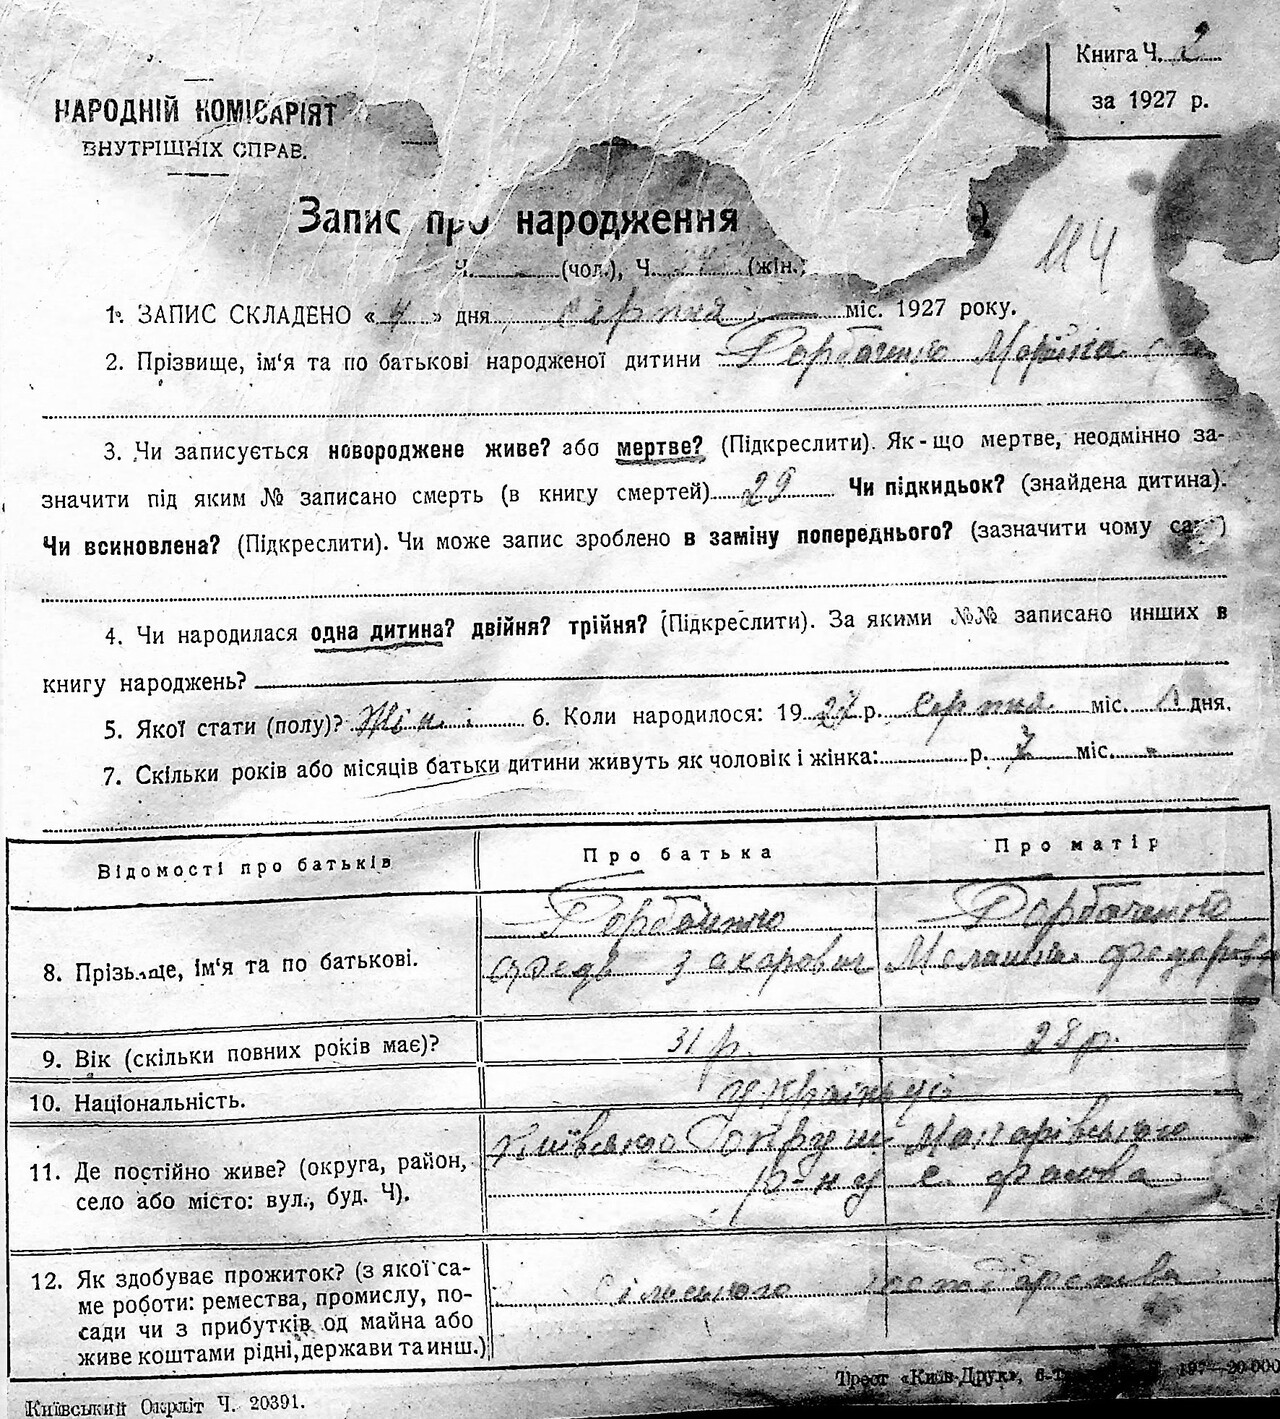 Книга Ч. 2
за 1927 р.
НАРОДНІЙ КОМІСАРІЯТ
ВНУТРІШНІХ СПРАВ.
Запис про народження
114
Ч. (чол.), Ч. (жін.)
1. ЗАПИС СКЛАДЕНО « 4 » дня серпня міс. 1927 року.
2. Прізвище, ім'я та по батькові народженої дитини Горбаченко
3. Чи записується новороджене живе? або мертве? (Підкреслити). Як-що мертве, неодмінно за-
значити під яким № записано смерть (в книгу смертей) 29 Чи підкидьок? (знайдена дитина).
Чи всиновлена? (Підкреслити). Чи може запис зроблено в заміну попереднього? (зазначити чому саме)
4. Чи народилася одна дитина? двійня? трійня? (Підкреслити). За якими №№ записано инших в
книгу народжень?
5. Якої стати (полу)? Жін. 6. Коли народилося: 1927 р. серпня міс. 1 дня.
7. Скільки років або місяців батьки дитини живуть як чоловік і жінка: р. 7 міс.
Відомості про батьків
Про батька
Про матір
8. Прізвище, ім'я та по батькові.
Горбаченко
Захарович
Горбаченко
Меланія Федоровна
9. Вік (скільки повних років має)?
31 р.
28 р.
10. Національність.
українці
11. Де постійно живе? (округа, район,
село або місто: вул., буд. Ч).
Київської округи Макарівського
р-ну с. Фасова
12. Як здобуває прожиток? (з якої са-
ме роботи: ремества, промислу, по-
сади чи з прибутків од майна або
живе коштами рідні, держави та инш.)
сільського господарства
Київський Окрліт Ч. 20391.
Трест «Київ-Друк», 20.000